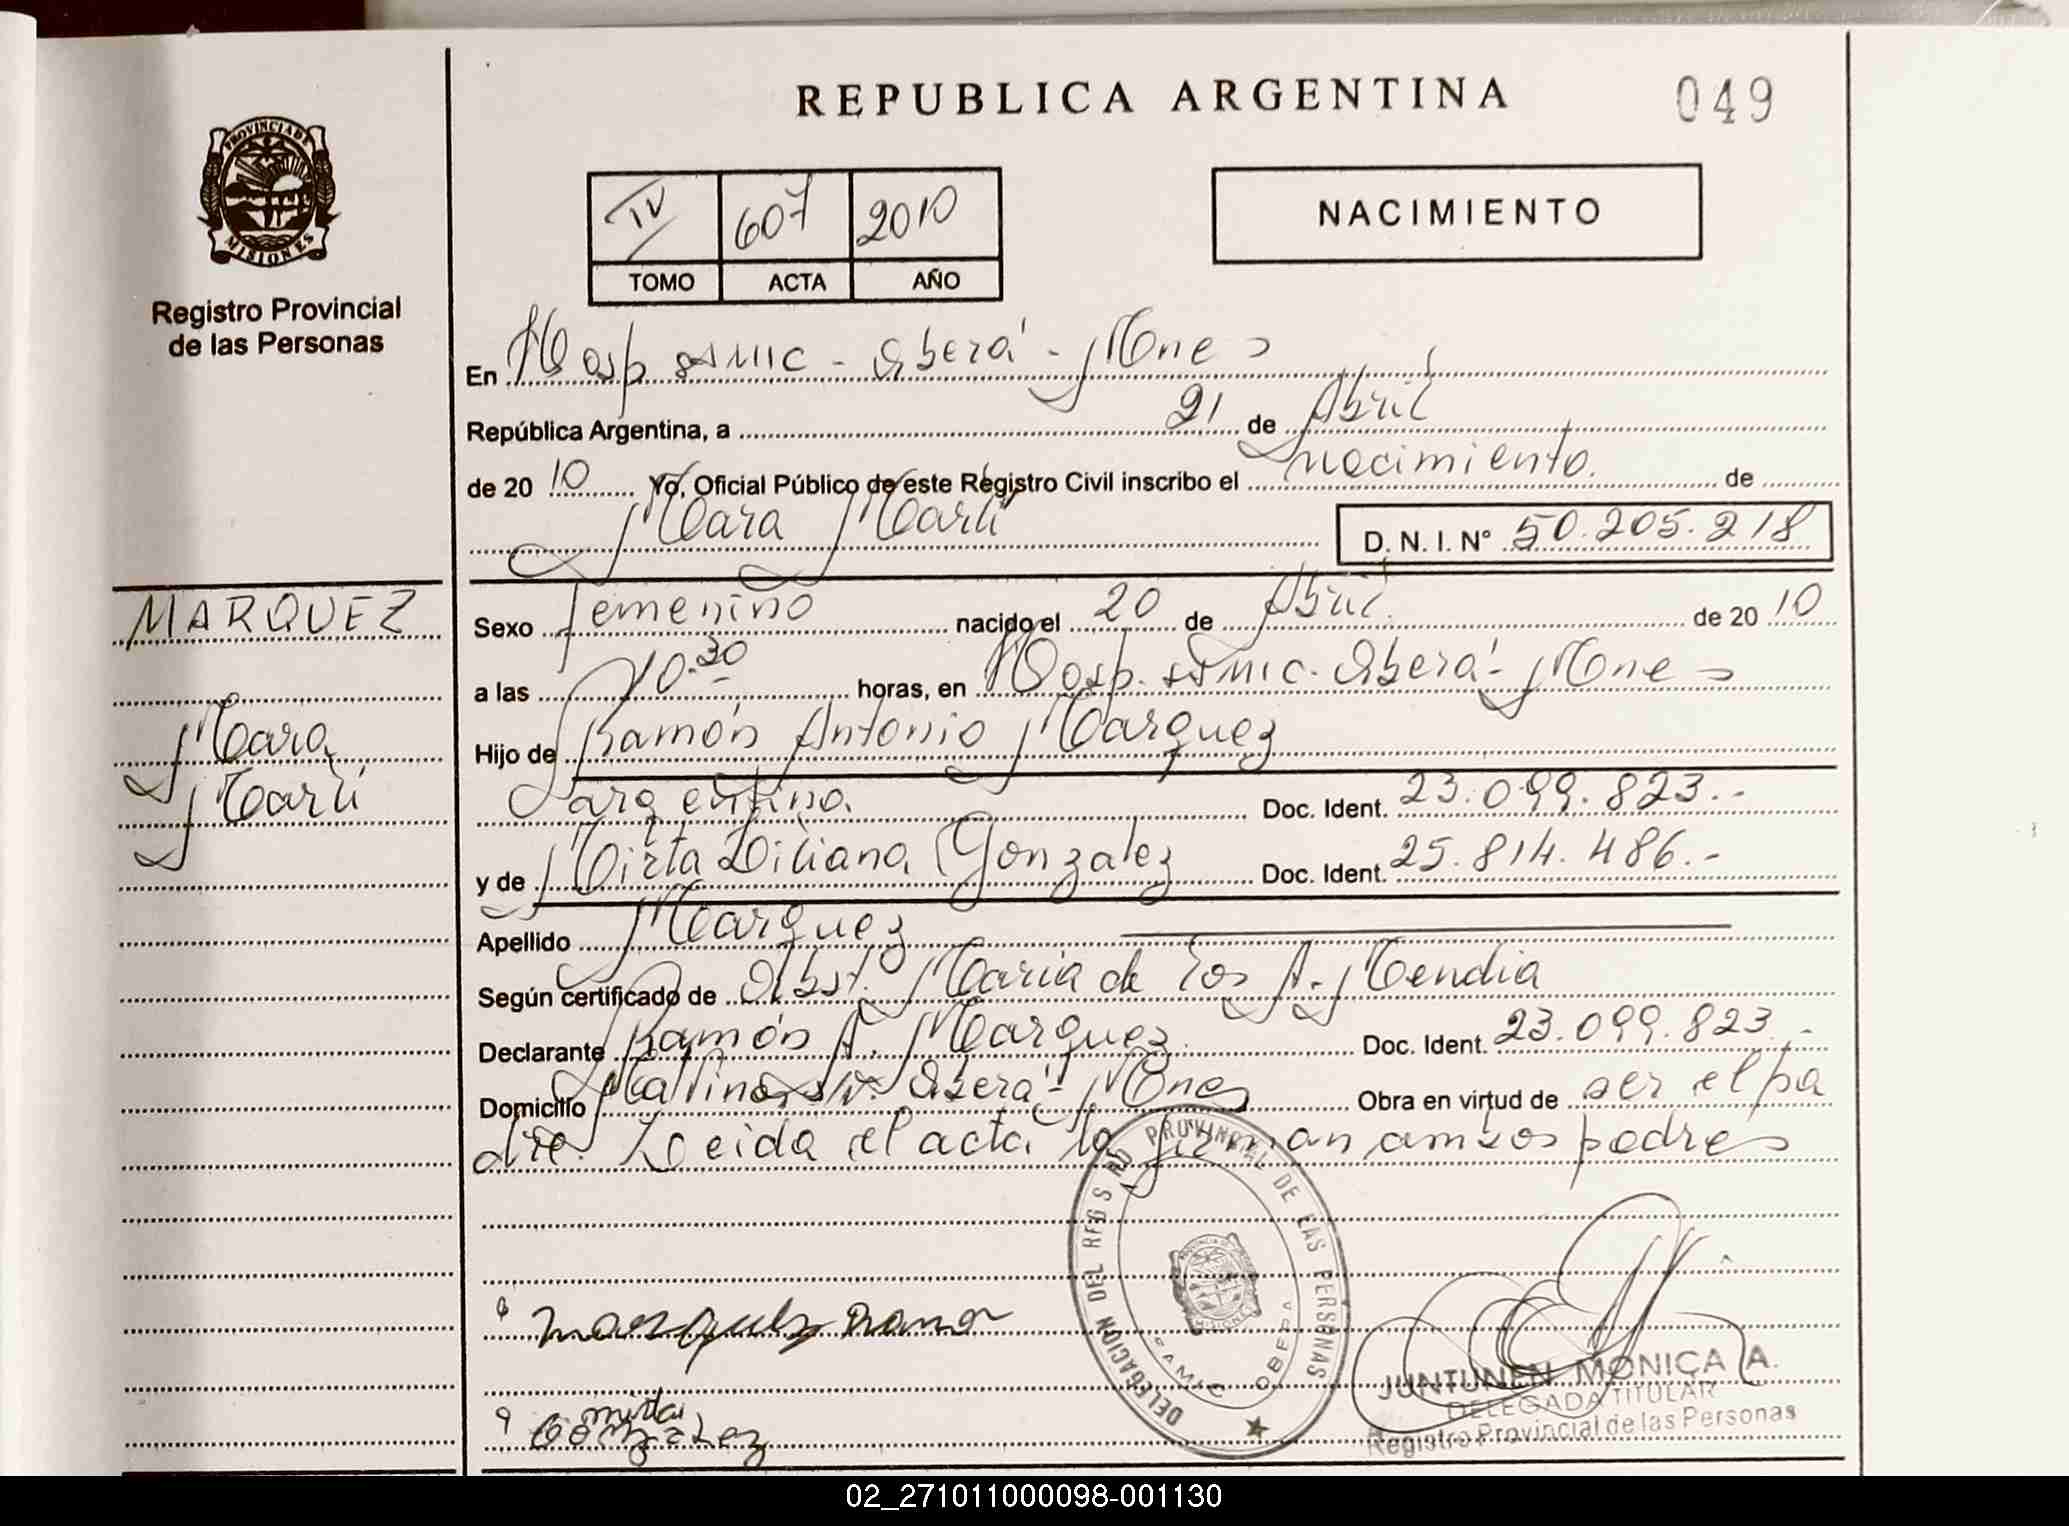 REPUBLICA ARGENTINA
049
PROVINCIA DE
MISIONES
Registro Provincial
de las Personas
IV 607 2010
TOMO ACTA AÑO
NACIMIENTO
En Hosp SAMIC - Oberá - Mnes
República Argentina, a 21 de Abril
de 2010 Yo, Oficial Público de este Registro Civil inscribo el nacimiento. de
Mara Marli
D. N. I. N° 50.205.218
MARQUEZ
Mara
Marli
Sexo femenino nacido el 20 de Abril de 2010
a las 10.30 horas, en Hosp. SAMIC. Oberá - Mnes
Hijo de Ramón Antonio Marquez
argentino. Doc. Ident. 23.099.823.-
y de Mirta Liliana Gonzalez Doc. Ident. 25.814.486.-
Apellido Marquez
Según certificado de Obst. Maria de los A. Mendia
Declarante Ramón A. Marquez Doc. Ident. 23.099.823.-
Domicilio Malvinas s/n. Oberá - Mnes Obra en virtud de ser el pa
dre. Leida el acta la firman ambos padres
DELEGACION DEL REGISTRO PROVINCIAL DE LAS PERSONAS
SAMIC OBERA
Marquez Ramon
mirta
Gonzalez
JUNTUNEN MONICA A.
DELEGADA TITULAR
Registro Provincial de las Personas
02_271011000098-001130